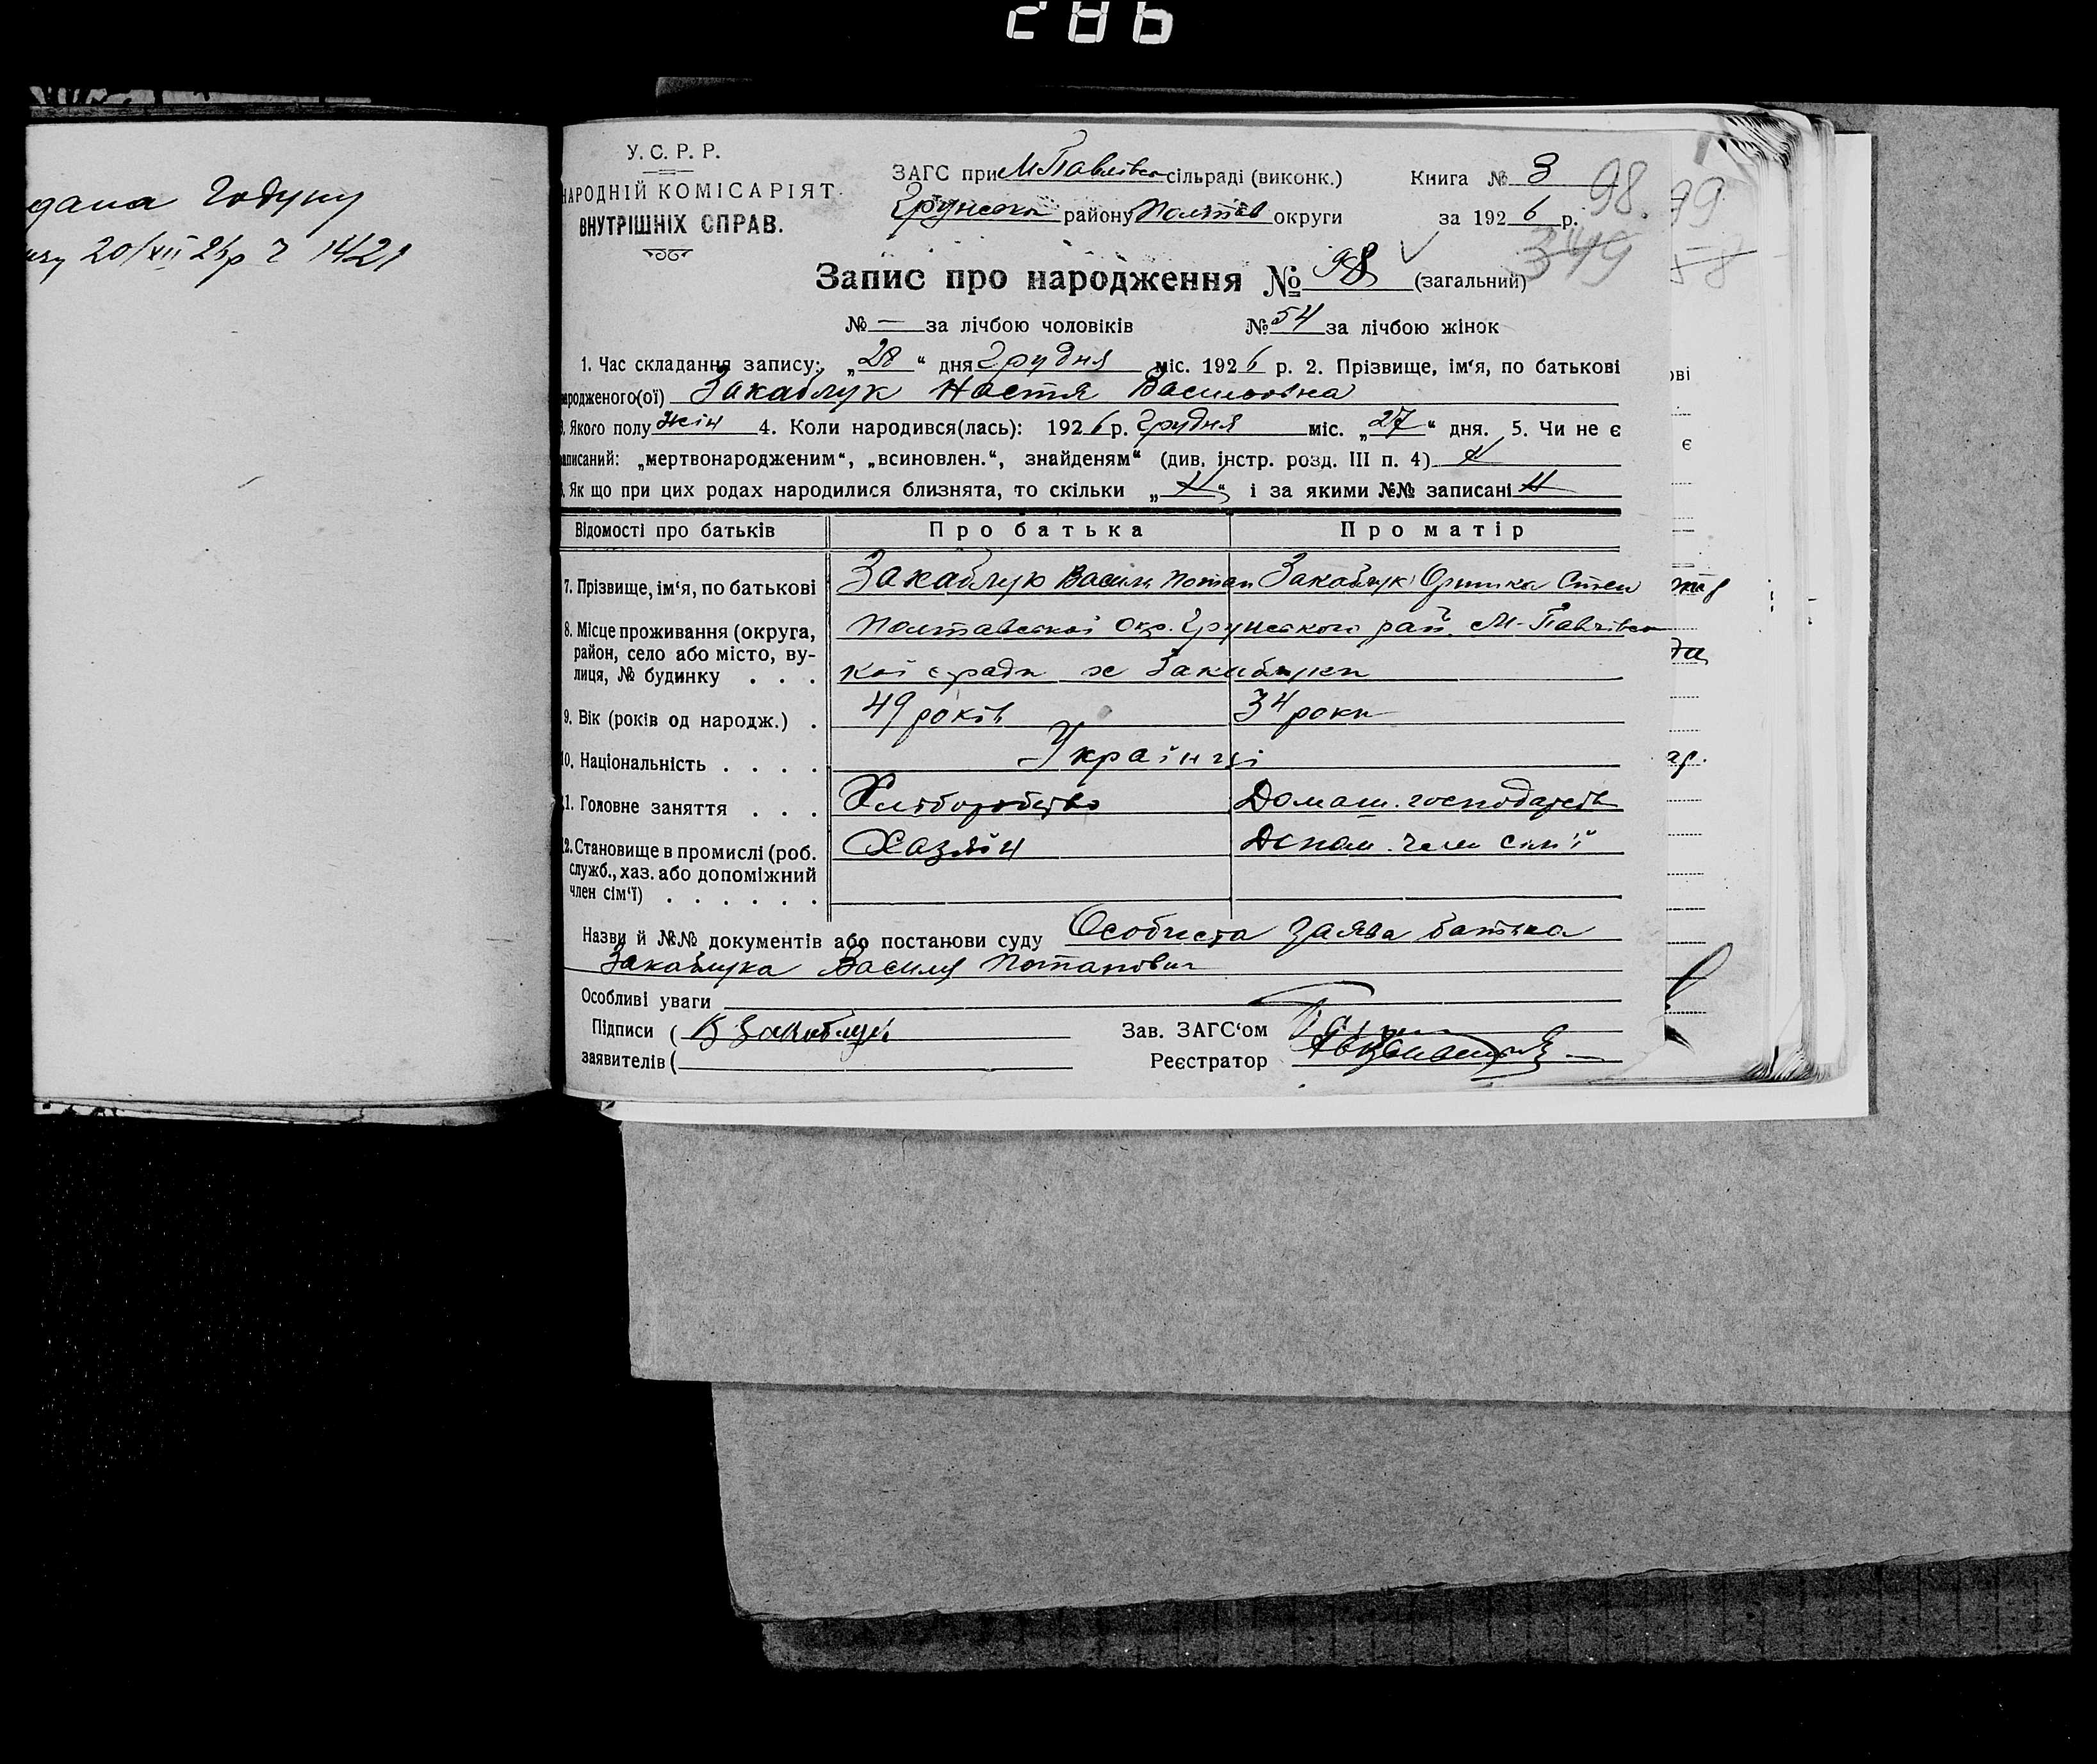 286
дана Годуну
20/XII 26р г 1421
У. С. Р. Р.
НАРОДНІЙ КОМІСАРІЯТ
ВНУТРІШНІХ СПРАВ.
ЗАГС при М Павлівсь сільраді (виконк.)
Грунськ району Полтав округи
Книга № 3
за 1926 р.
98.
99
349
58
Запис про народження № 98 (загальний)
№ — за лічбою чоловіків № 54 за лічбою жінок
1. Час складання запису: „28“ дня Грудня міс. 1926 р. 2. Прізвище, ім‘я, по батькові
народженого(ої) Закаблук Настя Васильовна
3. Якого полу жін 4. Коли народився(лась): 1926 р. Грудня міс. „27“ дня. 5. Чи не є
записаний: „мертвонародженим“, „всиновлен.“, знайденям“ (див. інстр. розд. III п. 4)
6. Як що при цих родах народилися близнята, то скільки „ “ і за якими №№ записані
Відомості про батьків Про батька Про матір
7. Прізвище, ім‘я, по батькові Закаблук Василь Потап Закаблук Оришка Степ
8. Місце проживання (округа, Полтавської Окр. Грунського рай. М-Павлівсь
район, село або місто, ву-
лиця, № будинку . . . кої с ради х Закаблуки
9. Вік (років од народж.) . 49 років 34 роки
10. Національність . . . . Українці
11. Головне заняття . . . Хліборобство Домаш. господарств
12. Становище в промислі (роб. Хазяїн Допом. член сім'ї
служб., хаз. або допоміжний
член сім‘ї) . . . . . .
Назви й №№ документів або постанови суду Особиста заява батька
Закаблука Василя Потапович
Особливі уваги
Підписи ( В Закаблук Зав. ЗАГС‘ом
заявителів ( Реєстратор